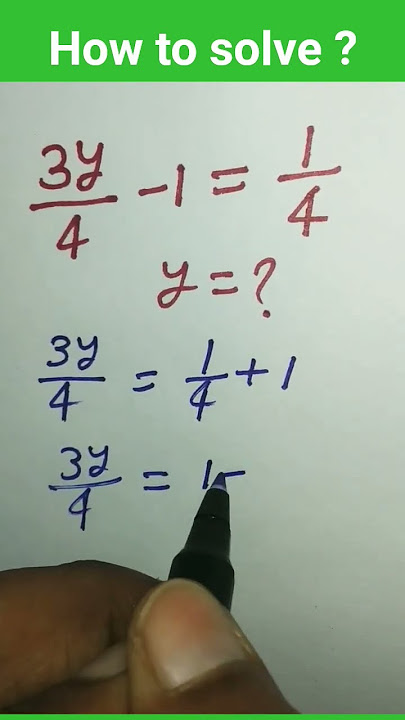 How to solve ?
3y/4 - 1 = 1/4
y = ?
3y/4 = 1/4 + 1
3y/4 = 1